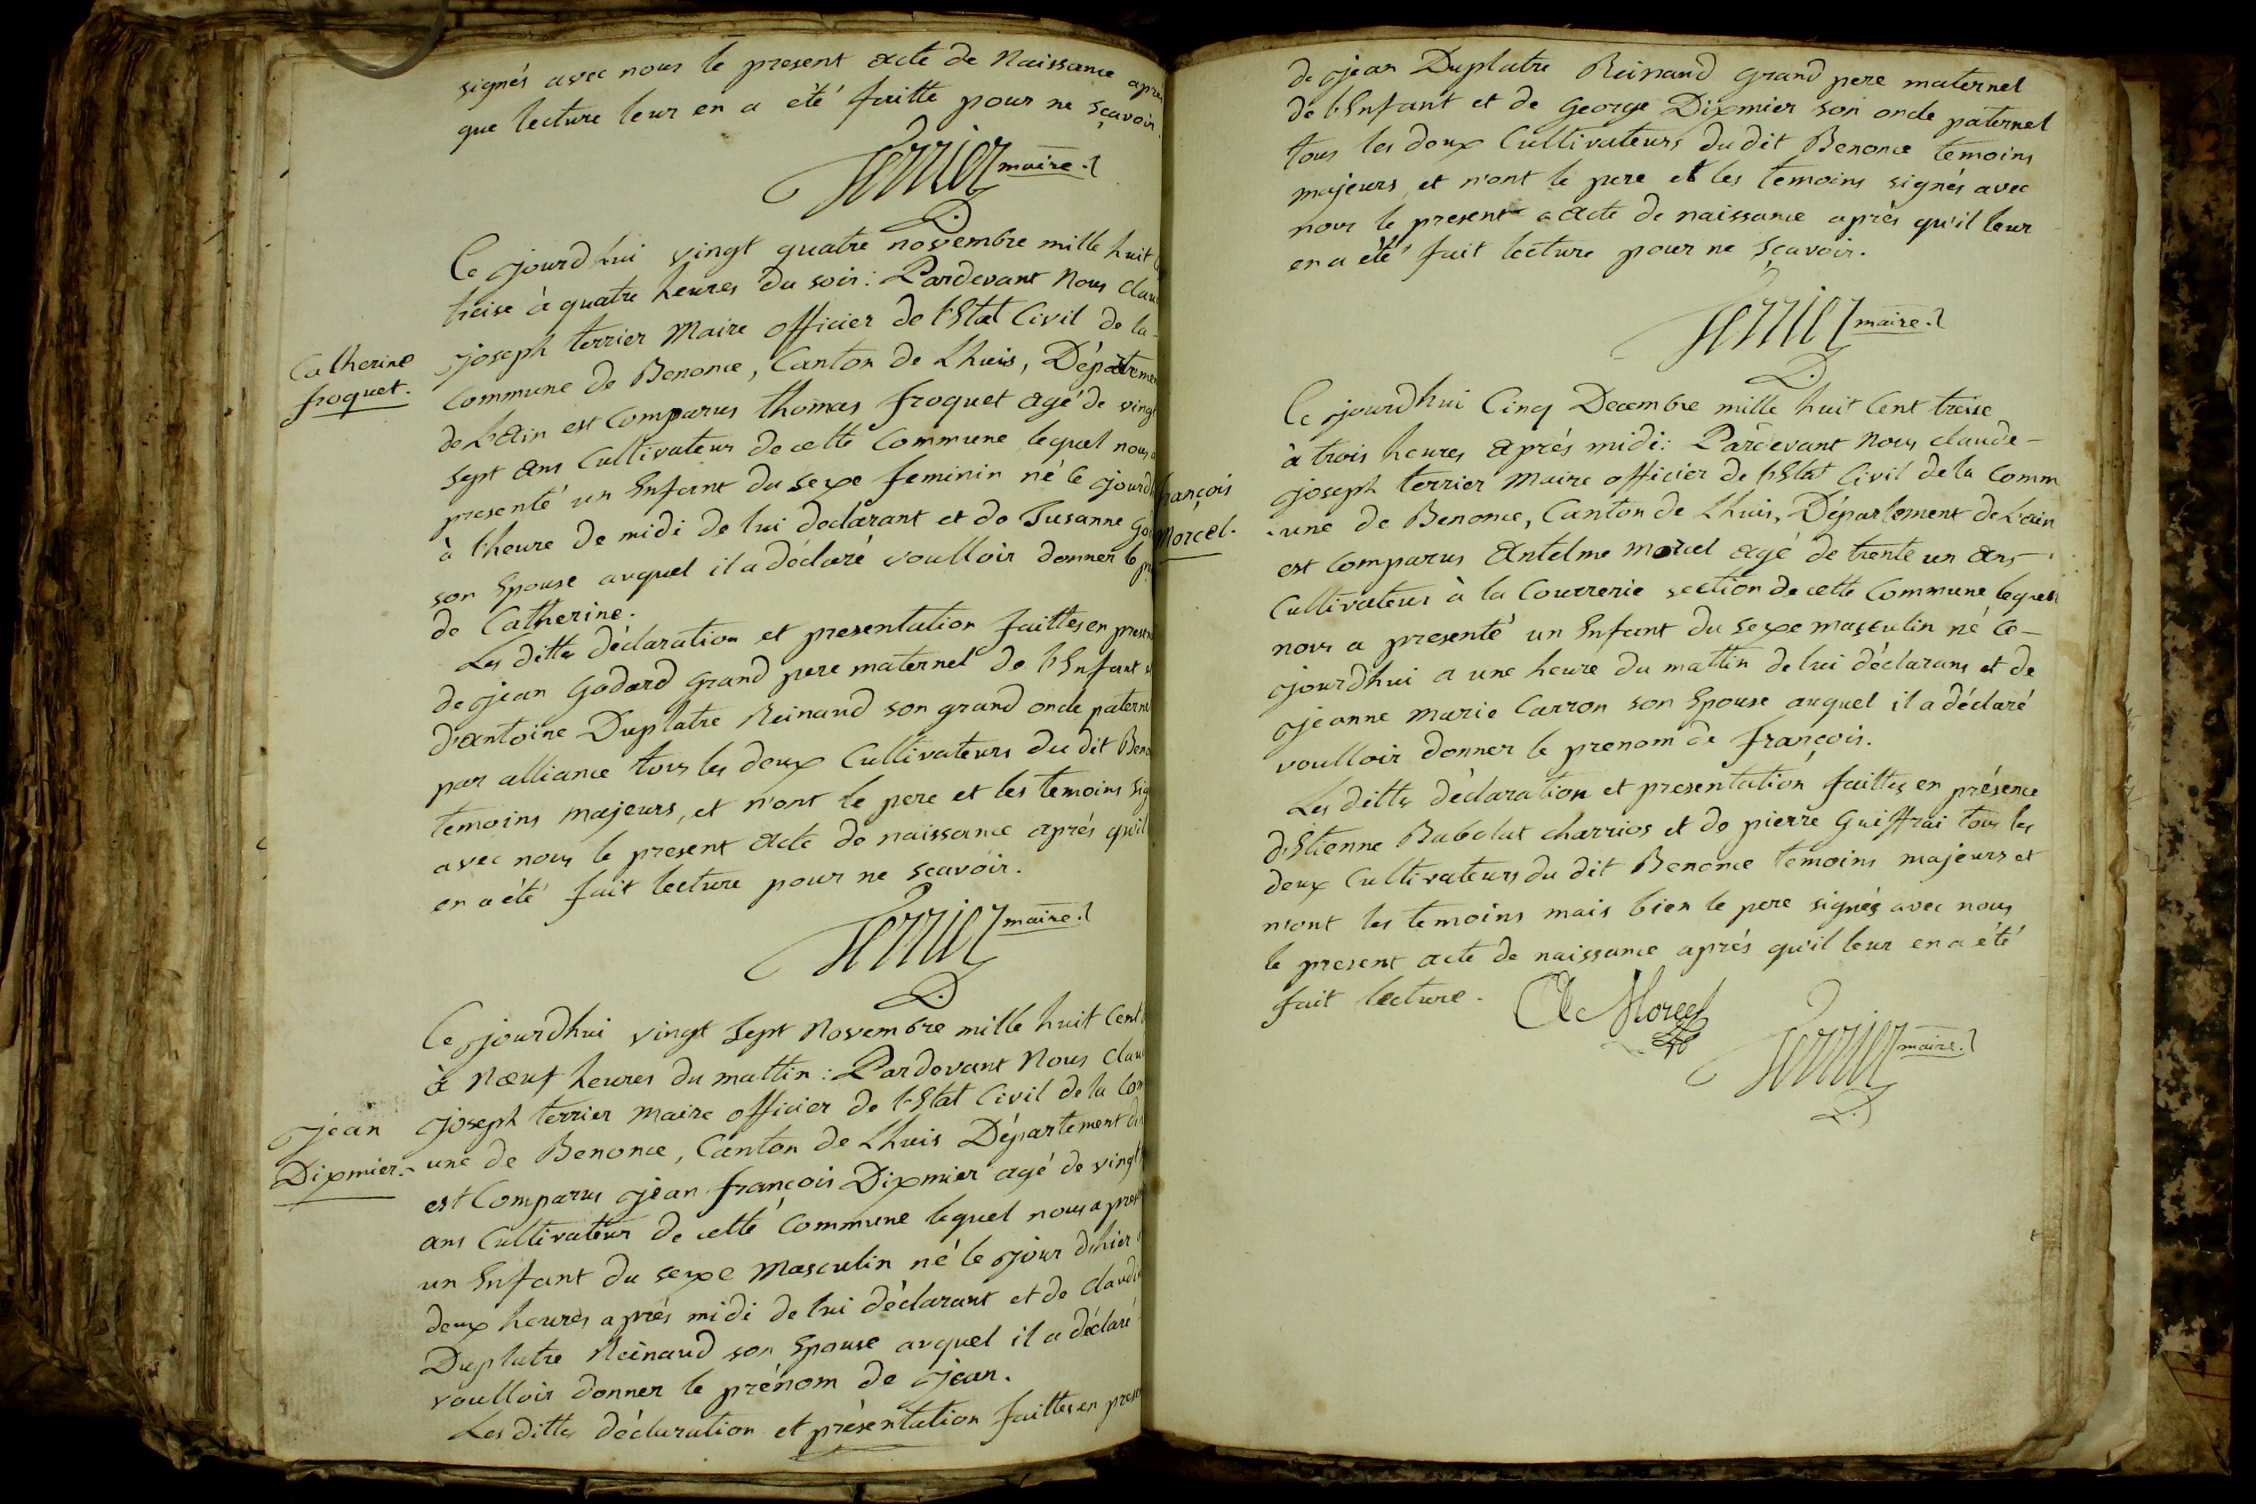 signés avec nous le present acte de Naissance après
que lecture leur en a été faitte pour ne sçavoir.
Terrier maire.
Ce jourdhui vingt quatre novembre mille huit
treise à quatre heures du soir : Pardevant Nous Clau
joseph terrier Maire officier de l'Etat Civil de la
Catherine
froquet.
Commune de Benonce, Canton de Lhuis, Départemen
de L'Ain est Comparus thomas froquet agé de vingt
sept ans Cultivateur de cette Commune lequel nous a
presenté un Enfant du sexe feminin né ce jourd
à l'heure de midi de lui déclarant et de Susanne God
son Epouse auquel il a déclaré voulloir donner le pr
de Catherine.
Les dittes déclaration et presentation faittes en presen
de jean Godard grand pere maternel de l'Enfant
d'Antoine Duplatre Reinaud son grand oncle paterne
par alliance tous les deux Cultivateurs du dit Beno
temoins majeurs, et n'ont le pere et les temoins sig
avec nous le present acte de naissance après qu'il
en a été fait lecture pour ne sçavoir.
Terrier maire.
Ce jourdhui vingt sept Novembre mille huit Cent
à Nœuf heures du mattin : Pardevant Nous Clau
joseph terrier Maire officier de l'Etat Civil de la Com
jean
Dixmier.
une de Benonce, Canton de Lhuis Département de
est Comparus jean françois Dixmier agé de vingt
ans Cultivateur de cette Commune lequel nous a prese
un Enfant du sexe Masculin né le jour dhier
deux heures après midi de lui déclarant et de Claudi
Duplatre Reinaud son Epouse auquel il a déclaré
voulloir donner le prénom de jean.
Les dittes déclaration et présentation faittes en prese
de jean Duplatre Reinaud grand pere maternel
de l'Enfant et de George Dixmier son oncle paternel
tous les deux Cultivateurs du dit Benonce temoins
majeurs, et n'ont le pere et les temoins signés avec
nous le present acte de naissance après qu'il leur
en a été fait lecture pour ne sçavoir.
Terrier maire.
Ce jourdhui Cinq Decembre mille huit Cent treise
à trois heures après midi : Pardevant Nous claude
joseph terrier Maire officier de l'Etat Civil de la Comm
françois
Morcel.
une de Benonce, Canton de Lhuis, Département de L'ain
est Comparus Antelme Morcel agé de trente un Ans
Cultivateur à la Courrerie section de cette Commune lequel
nous a presenté un Enfant du sexe masculin né ce
jourdhui a une heure du mattin de lui déclarant et de
jeanne marie Carron son Epouse auquel il a déclaré
voulloir donner le prenom de françois.
Les dittes déclaration et presentation faittes en présence
d'Etienne Babolat charrios et de pierre Guiffrai tous les
deux Cultivateurs du dit Benonce temoins majeurs et
n'ont les temoins mais bien le pere signés avec nous
le present acte de naissance après qu'il leur en a été
fait lecture.
Morcel
Terrier maire.